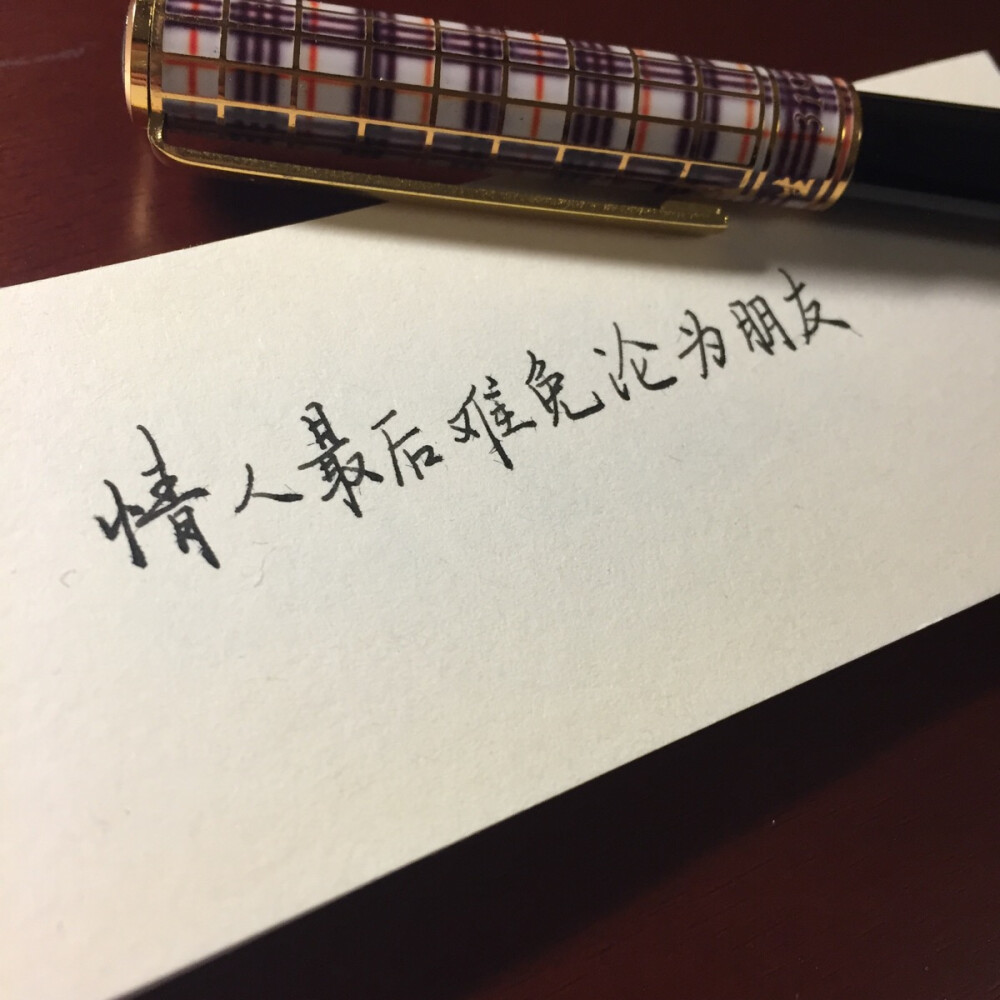 情人最后难免沦为朋友